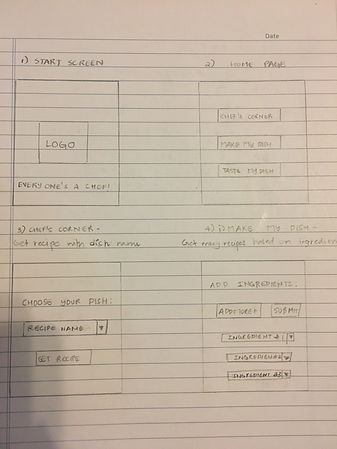 Date
1) START SCREEN
2) HOME PAGE
LOGO
EVERYONE'S A CHEF!
CHEF'S CORNER
MAKE MY DISH
TASTE MY DISH
3) CHEF'S CORNER -
Get recipe with dish name
4) i) MAKE MY DISH -
Get many recipes based on ingredien
CHOOSE YOUR DISH:
RECIPE NAME
GET RECIPE
ADD INGREDIENTS:
ADD MORE+ SUBMIT
INGREDIENT #1
INGREDIENT #2
INGREDIENT #3